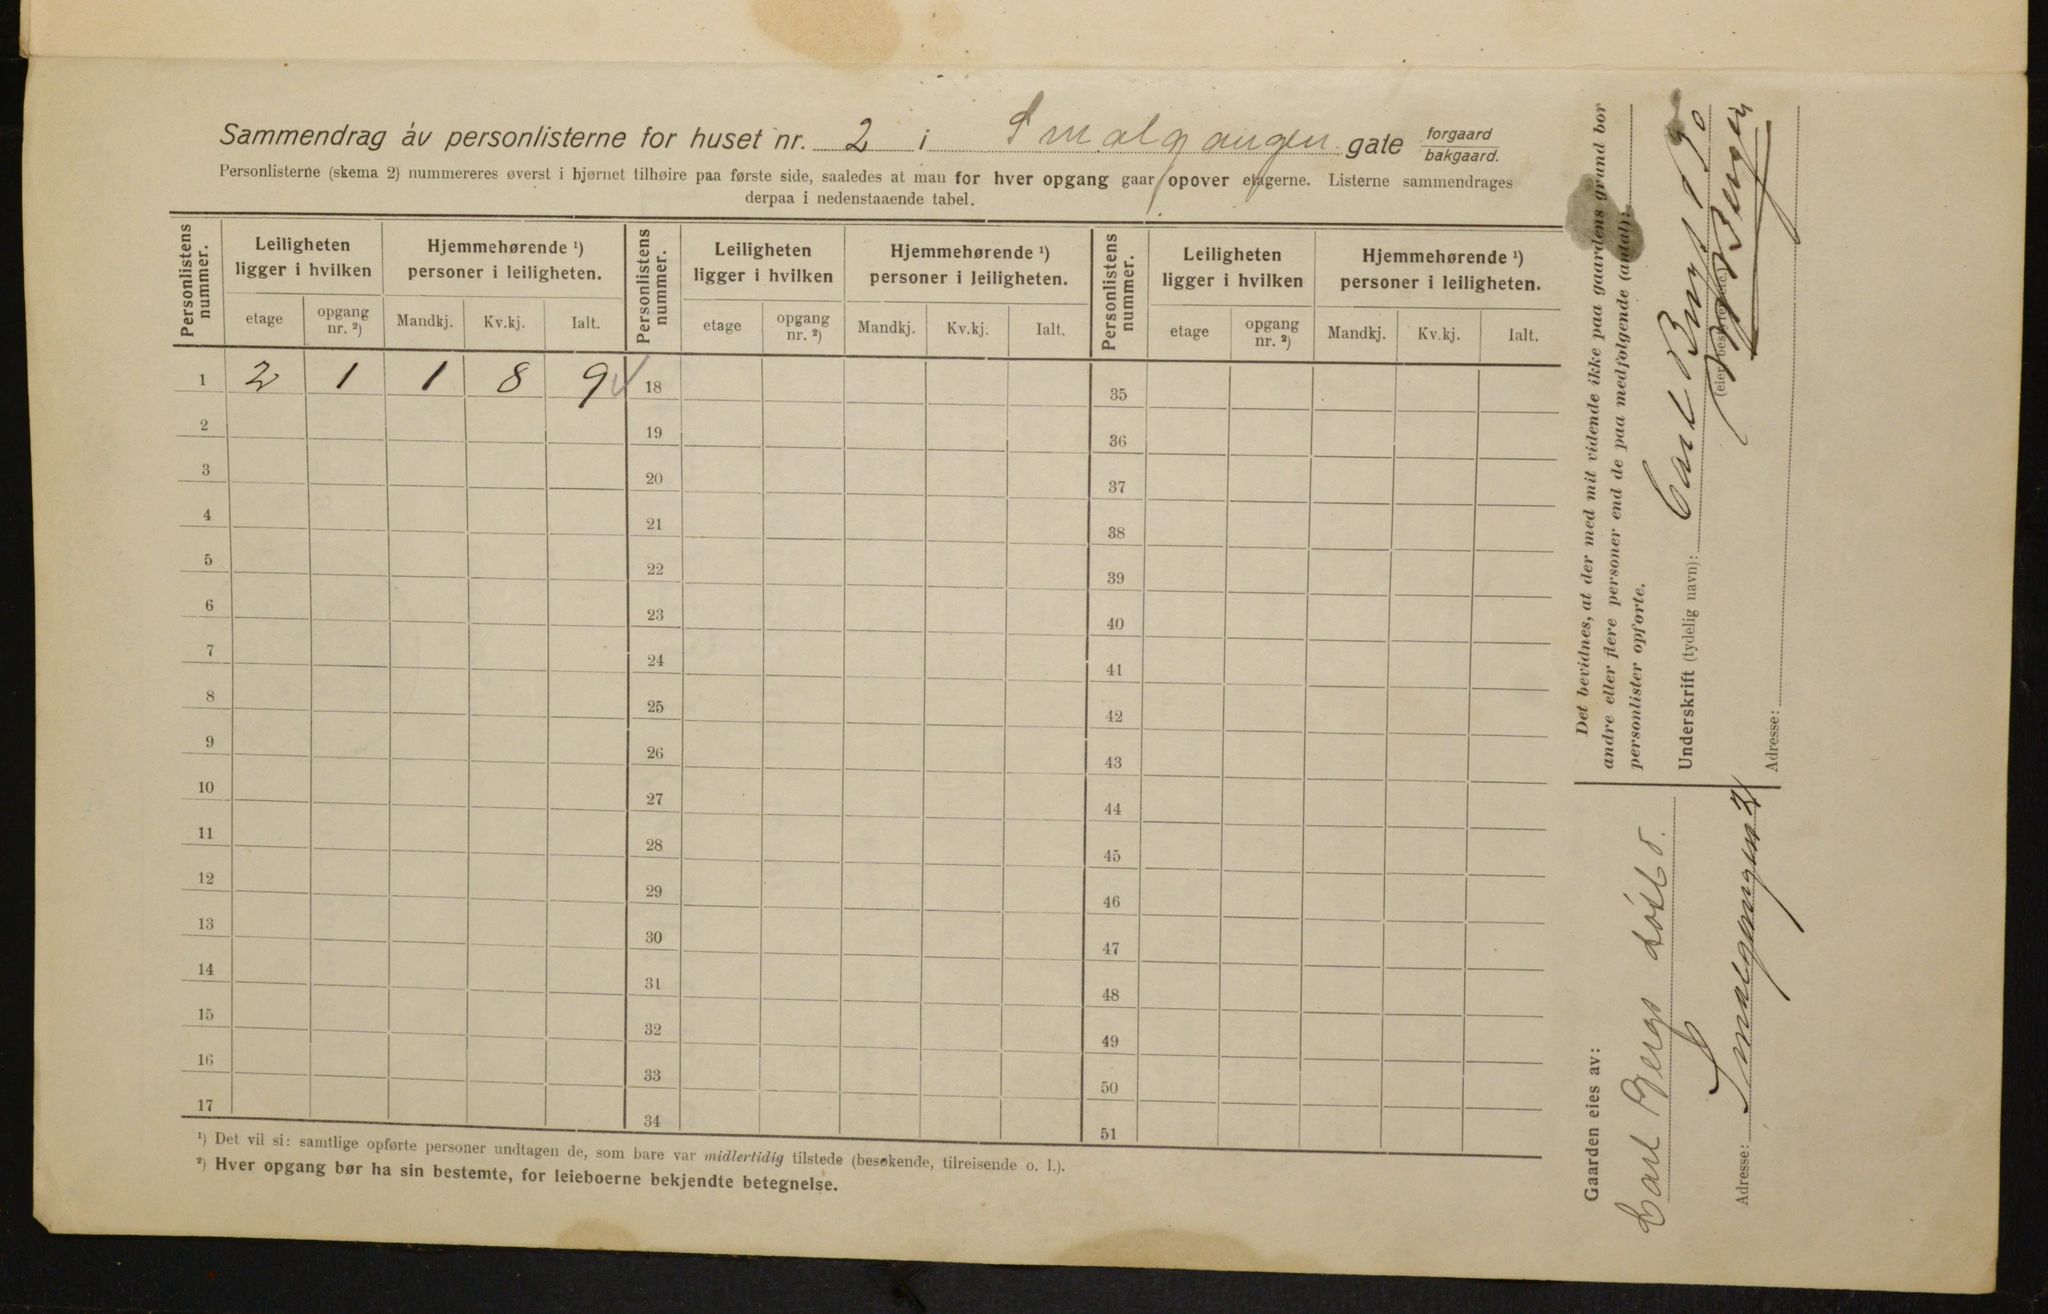 Sammendrag av personlisterne for huset nr. 2 i Smalgangen gate forgaard bakgaard.
Personlisterne (skema 2) nummereres øverst i hjørnet tilhøire paa første side, saaledes at man for hver opgang gaar opover etagerne. Listerne sammendrages
derpaa i nedenstaaende tabel.
Personlistens nummer. Leiligheten ligger i hvilken Hjemmehørende ¹) personer i leiligheten. Personlistens nummer. Leiligheten ligger i hvilken Hjemmehørende ¹) personer i leiligheten. Personlistens nummer. Leiligheten ligger i hvilken Hjemmehørende ¹) personer i leiligheten.
etage opgang nr. ²) Mandkj. Kv.kj. Ialt. etage opgang nr. ²) Mandkj. Kv.kj. Ialt. etage opgang nr. ²) Mandkj. Kv.kj. Ialt.
1 2 1 1 8 9 18 35
2 19 36
3 20 37
4 21 38
5 22 39
6 23 40
7 24 41
8 25 42
9 26 43
10 27 44
11 28 45
12 29 46
13 30 47
14 31 48
15 32 49
16 33 50
17 34 51
¹) Det vil si: samtlige opførte personer undtagen de, som bare var midlertidig tilstede (besøkende, tilreisende o. l.).
²) Hver opgang bør ha sin bestemte, for leieboerne bekjendte betegnelse.
Det bevidnes, at der med mit vidende ikke paa gaardens grund bor
andre eller flere personer end de paa medfølgende (antal):
personlister opførte.
Underskrift (tydelig navn): Carl
(eier, bestyrer etc.)
Adresse:
Gaarden eies av:
Carl Bergs
Adresse: Smalgangen 2